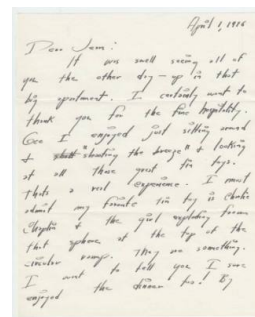 April 1, 1986
Dear Sam:
It was swell seeing all of
you the other day - up in that
big apartment. I certainly want to
thank you for the fine hospitality.
Gee I enjoyed just sitting around
& "shooting the breeze" & looking
at all those great tin toys.
That's a real experience. I must
admit my favorite tin toy is Charlie
Chaplin & the girl exploding from
that sphere at the top of the
circular ramp. They're something.
I want to tell you I sure
enjoyed the dinner too! By